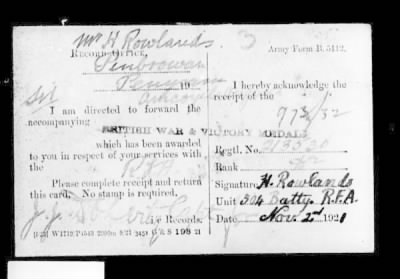 Mr H Rowlands.
RECORD OFFICE,
Penbrowan
3
Army Form B. 5112.
19
Sir
I am directed to forward the
accompanying
BRITISH WAR & VICTORY MEDALS
which has been awarded
to you in respect of your services with
the R.F.A.
Please complete receipt and return
this card. No stamp is required.
i/c Records.
I hereby acknowledge the
receipt of the
Regtl. No. 213520
Rank
Signature H. Rowlands
Unit 304 Batty. R.F.A.
Date Nov. 2nd 1921